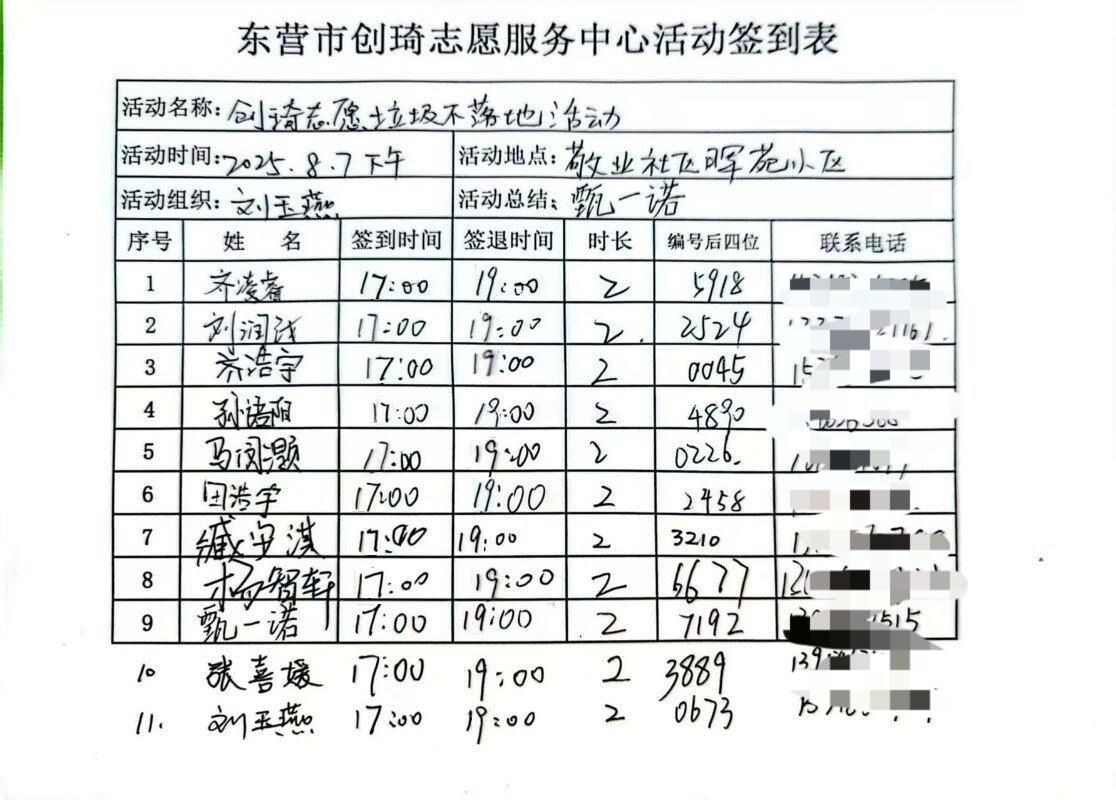 东营市创琦志愿服务中心活动签到表
活动名称:创琦志愿垃圾不落地活动
活动时间:2025.8.7下午 活动地点:敬业社区晖苑小区
活动组织:刘玉燕 活动总结:甄一诺
序号 姓名 签到时间 签退时间 时长 编号后四位 联系电话
1 齐凌睿 17:00 19:00 2 5918
2 刘润 17:00 19:00 2. 2524
3 齐浩宇 17:00 19:00 2 0045
4 孙语阳 17:00 19:00 2 4890
5 马闵灏 17:00 19:00 2 0226.
6 田浩宇 17:00 19:00 2 2458
7 臧安淇 17:00 19:00 2 3210
8 杨智轩 17:00 19:00 2 6677
9 甄一诺 17:00 19:00 2 7192 1515
10 张喜媛 17:00 19:00 2 3889 139
11. 刘玉燕 17:00 19:00 2 0673